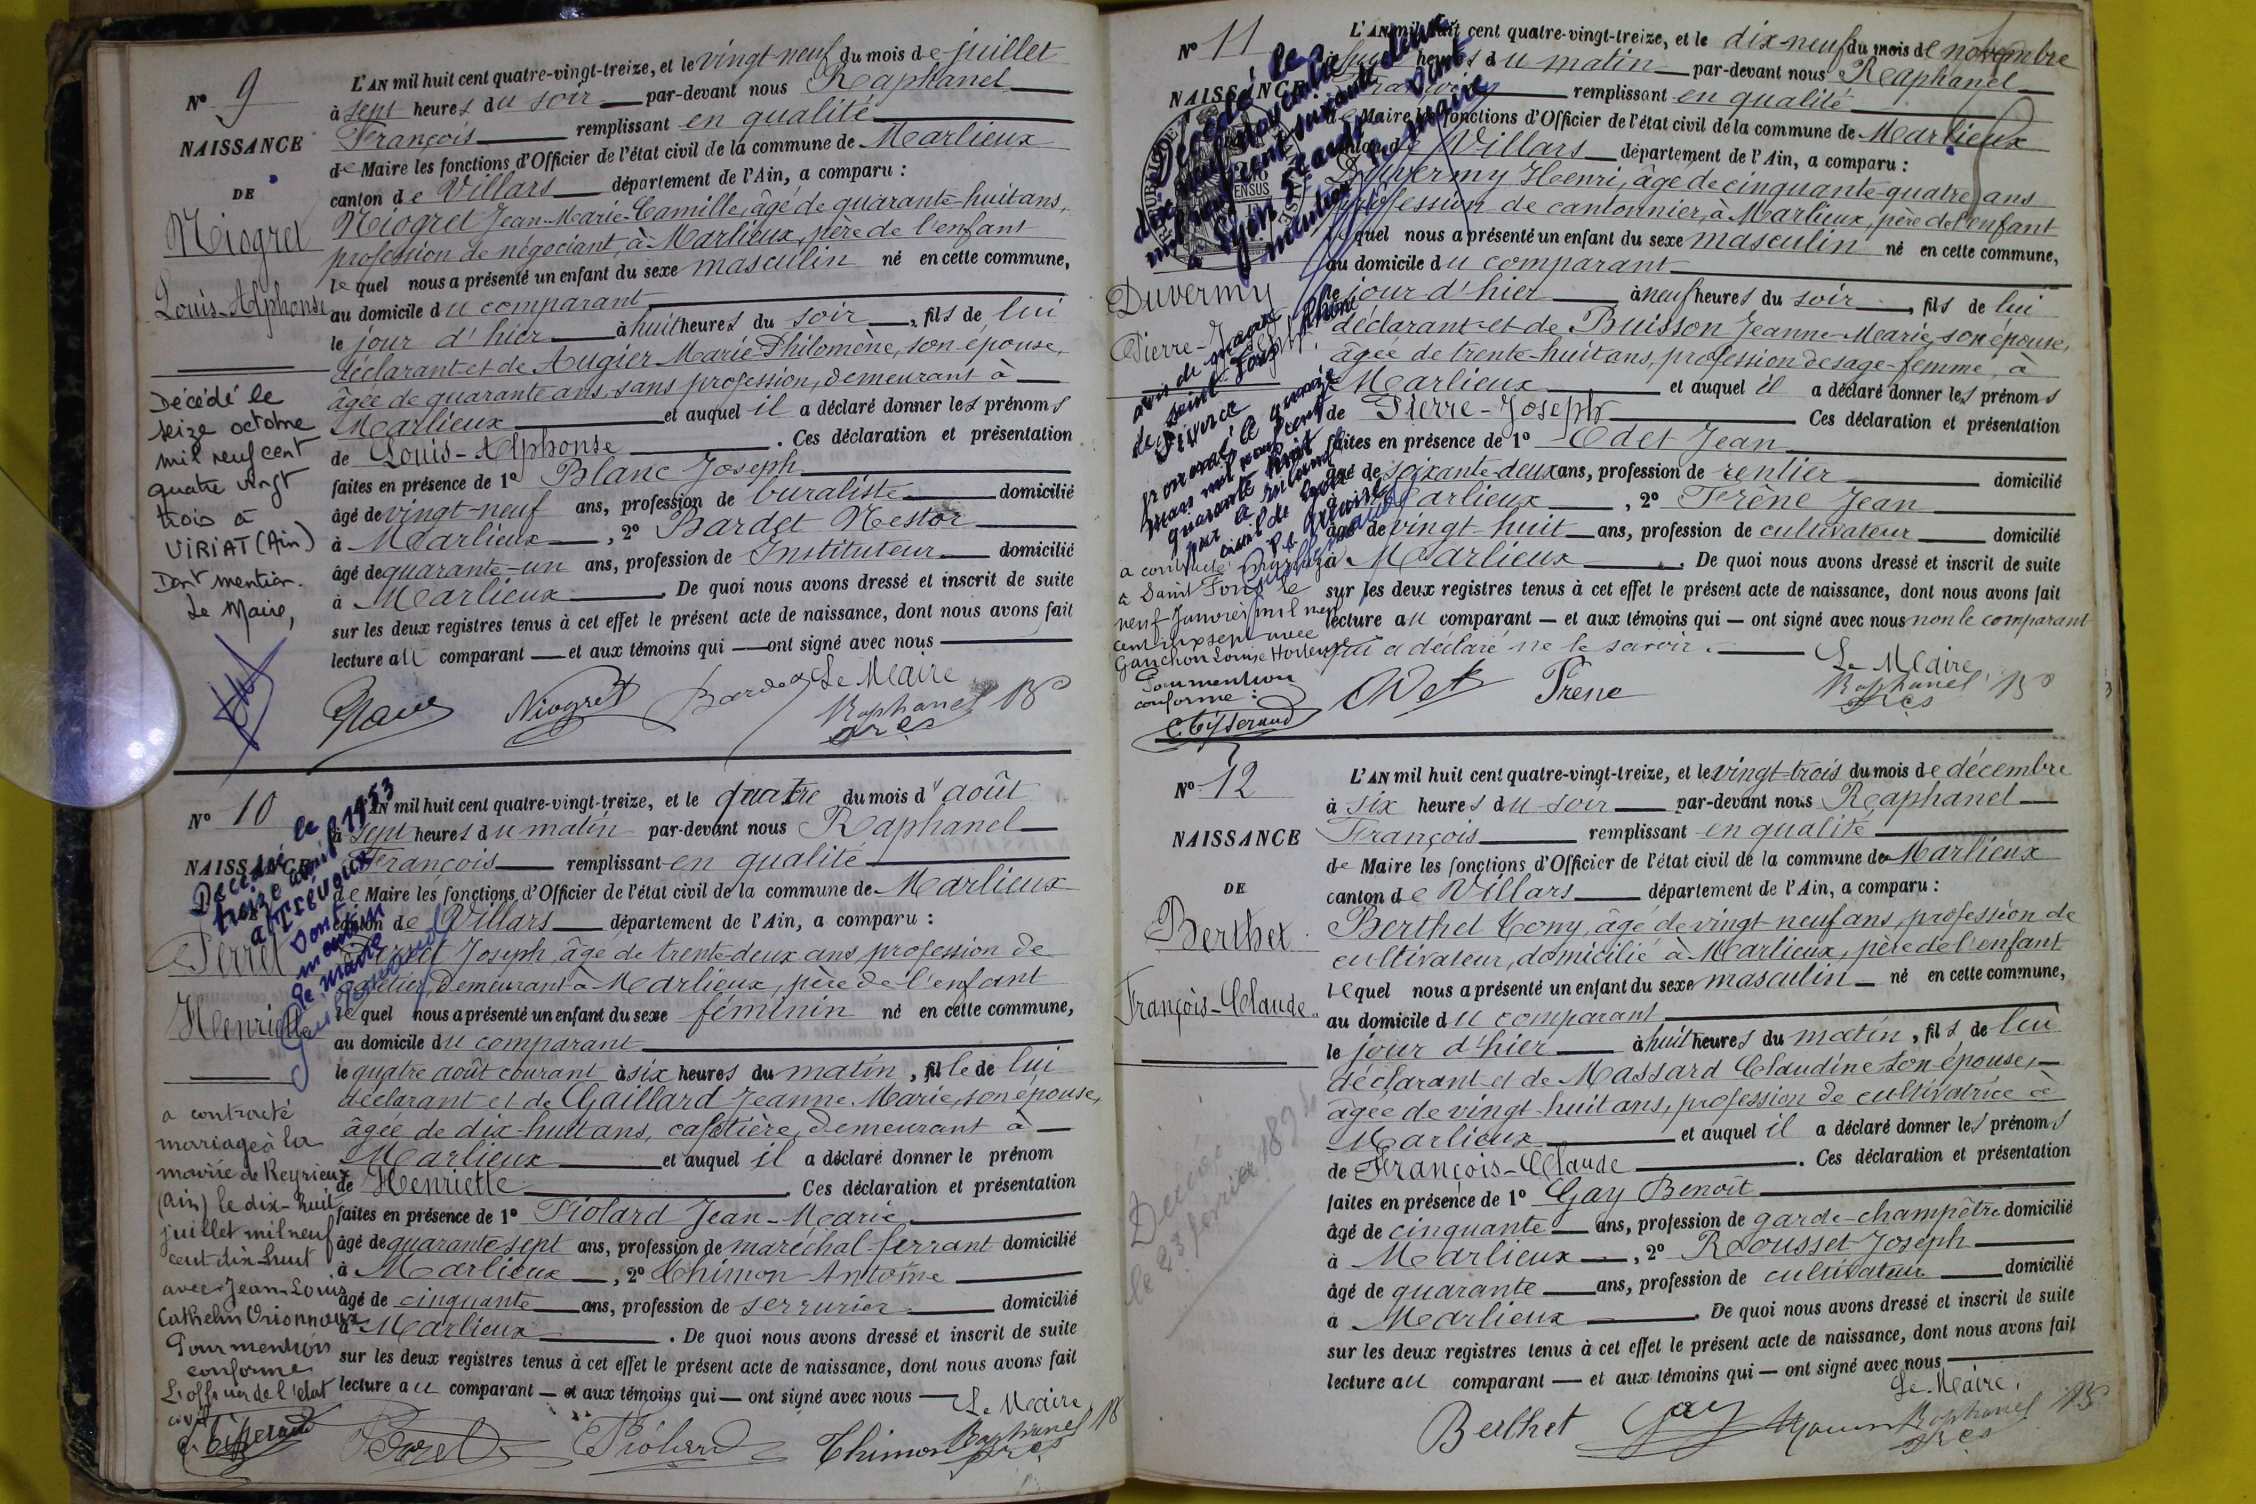 N° 9
NAISSANCE
DE
Niogret
Louis-Alphonse
Décédé le
seize octobre
mil neuf cent
quatre vingt
trois à
VIRIAT (Ain)
Dont mention.
Le Maire,
L'AN mil huit cent quatre-vingt-treize, et le vingt-neuf du mois de juillet
à sept heures du soir par-devant nous Raphanel
François remplissant en qualité
de Maire les fonctions d'Officier de l'état civil de la commune de Marlieux
canton de Villars département de l'Ain, a comparu :
Niogret Jean-Marie-Camille, âgé de quarante-huit ans,
profession de négociant, à Marlieux, père de l'enfant
lequel nous a présenté un enfant du sexe masculin né en cette commune,
au domicile du comparant
le jour d'hier à huit heures du soir, fils de lui
déclarant et de Augier Marie-Philomène, son épouse,
âgée de quarante ans, sans profession, demeurant à
Marlieux et auquel il a déclaré donner les prénoms
de Louis-Alphonse. Ces déclaration et présentation
faites en présence de 1° Blanc Joseph
âgé de vingt-neuf ans, profession de buraliste domicilié
à Marlieux, 2° Bardet Nestor
âgé de quarante-un ans, profession de Instituteur domicilié
à Marlieux. De quoi nous avons dressé et inscrit de suite
sur les deux registres tenus à cet effet le présent acte de naissance, dont nous avons fait
lecture au comparant — et aux témoins qui — ont signé avec nous
Blanc Niogret Bardet Le Maire
Raphanel
N° 10
NAISSANCE
Perret
Henriette
Décédée le
treize avril 1953
à Trévoux
Dont
mention
Le Maire
a contracté
mariage à la
mairie de Reyrieux
(Ain) le dix-huit
juillet mil neuf
cent dix-huit
avec Jean-Louis
Cathelin
Pour mention
conforme
L'officier de l'état
civil
L'AN mil huit cent quatre-vingt-treize, et le quatre du mois d'août
à sept heures du matin par-devant nous Raphanel
François remplissant en qualité
de Maire les fonctions d'Officier de l'état civil de la commune de Marlieux
canton de Villars département de l'Ain, a comparu :
Perret Joseph, âgé de trente-deux ans, profession de
cafetier, demeurant à Marlieux, père de l'enfant
lequel nous a présenté un enfant du sexe féminin né en cette commune,
au domicile du comparant
le quatre août courant à six heures du matin, fille de lui
déclarant et de Gaillard Jeanne-Marie, son épouse,
âgée de dix-huit ans, cafetière, demeurant à
Marlieux et auquel il a déclaré donner le prénom
de Henriette. Ces déclaration et présentation
faites en présence de 1° Piolard Jean-Marie
âgé de quarante-sept ans, profession de maréchal-ferrant domicilié
à Marlieux, 2° Thimon Antoine
âgé de cinquante ans, profession de serrurier domicilié
à Marlieux. De quoi nous avons dressé et inscrit de suite
sur les deux registres tenus à cet effet le présent acte de naissance, dont nous avons fait
lecture au comparant — et aux témoins qui — ont signé avec nous
Perret Piolard Thimon Le Maire
Raphanel
N° 11
NAISSANCE
Duvermy
Pierre-Joseph
Décédé le
dix neuf
mil neuf cent soixante deux
à Lyon
mention
Le Maire
Divorce
prononcé le quinze
mars mil neuf cent
quarante huit
a contracté mariage
à Saint Fons le
neuf Janvier mil neuf
cent dix sept avec
Gauchon Louise Hortense
Pour mention
conforme :
L'AN mil huit cent quatre-vingt-treize, et le dix-neuf du mois de novembre
heures du matin par-devant nous Raphanel
François remplissant en qualité
de Maire les fonctions d'Officier de l'état civil de la commune de Marlieux
canton de Villars département de l'Ain, a comparu :
Duvermy Henri, âgé de cinquante-quatre ans
profession de cantonnier, à Marlieux, père de l'enfant
lequel nous a présenté un enfant du sexe masculin né en cette commune,
au domicile du comparant
le jour d'hier à neuf heures du soir, fils de lui
déclarant et de Buisson Jeanne-Marie, son épouse,
âgée de trente-huit ans, profession de sage-femme, à
Marlieux et auquel il a déclaré donner les prénoms
de Pierre-Joseph Ces déclaration et présentation
faites en présence de 1° Odet Jean
âgé de soixante-deux ans, profession de rentier domicilié
à Marlieux, 2° Frène Jean
âgé de vingt-huit ans, profession de cultivateur domicilié
à Marlieux. De quoi nous avons dressé et inscrit de suite
sur les deux registres tenus à cet effet le présent acte de naissance, dont nous avons fait
lecture au comparant — et aux témoins qui — ont signé avec nous non le comparant
qui a déclaré ne le savoir.
Odet Frene Le Maire
Raphanel
N° 12
NAISSANCE
DE
Berthet
François-Claude
Décédé
le 23 février 1894
L'AN mil huit cent quatre-vingt-treize, et le vingt-trois du mois de décembre
à six heures du soir par-devant nous Raphanel
François remplissant en qualité
de Maire les fonctions d'Officier de l'état civil de la commune de Marlieux
canton de Villars département de l'Ain, a comparu :
Berthet Tony, âgé de vingt-neuf ans, profession de
cultivateur, domicilié à Marlieux, père de l'enfant
lequel nous a présenté un enfant du sexe masculin né en cette commune,
au domicile du comparant
le jour d'hier à huit heures du matin, fils de lui
déclarant et de Massard Claudine son épouse,
âgée de vingt-huit ans, profession de cultivatrice à
Marlieux et auquel il a déclaré donner les prénoms
de François-Claude. Ces déclaration et présentation
faites en présence de 1° Gay Benoît
âgé de cinquante ans, profession de garde-champêtre domicilié
à Marlieux, 2° Rousset Joseph
âgé de quarante ans, profession de cultivateur domicilié
à Marlieux. De quoi nous avons dressé et inscrit de suite
sur les deux registres tenus à cet effet le présent acte de naissance, dont nous avons fait
lecture au comparant — et aux témoins qui — ont signé avec nous
Le Maire.
Berthet Gay Raphanel